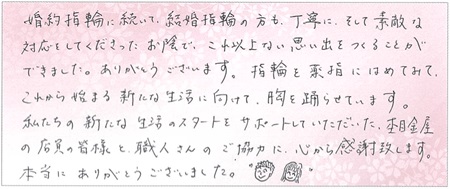 婚約指輪に続いて、結婚指輪の方も、丁寧に、そして素敵な
対応をしてくださったお陰で、これ以上ない思い出をつくることが
できました。ありがとうございます。指輪を薬指にはめてみて、
これから始まる新たな生活に向けて、胸を踊らせています。
私たちの新たな生活のスタートをサポートしていただいた、杢目金屋
の店員の皆様と、職人さんのご協力に、心から感謝致します。
本当にありがとうございました。